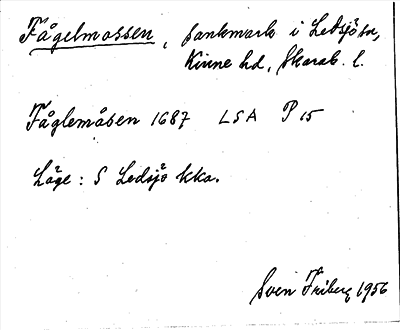 Fågelmossen, sankmark i Ledsjö sn,
Kinne hd, Skarab. l.
Fåglemåsen 1687 LSA P 15
Läge: S Ledsjö kka.
Sven Friberg 1956